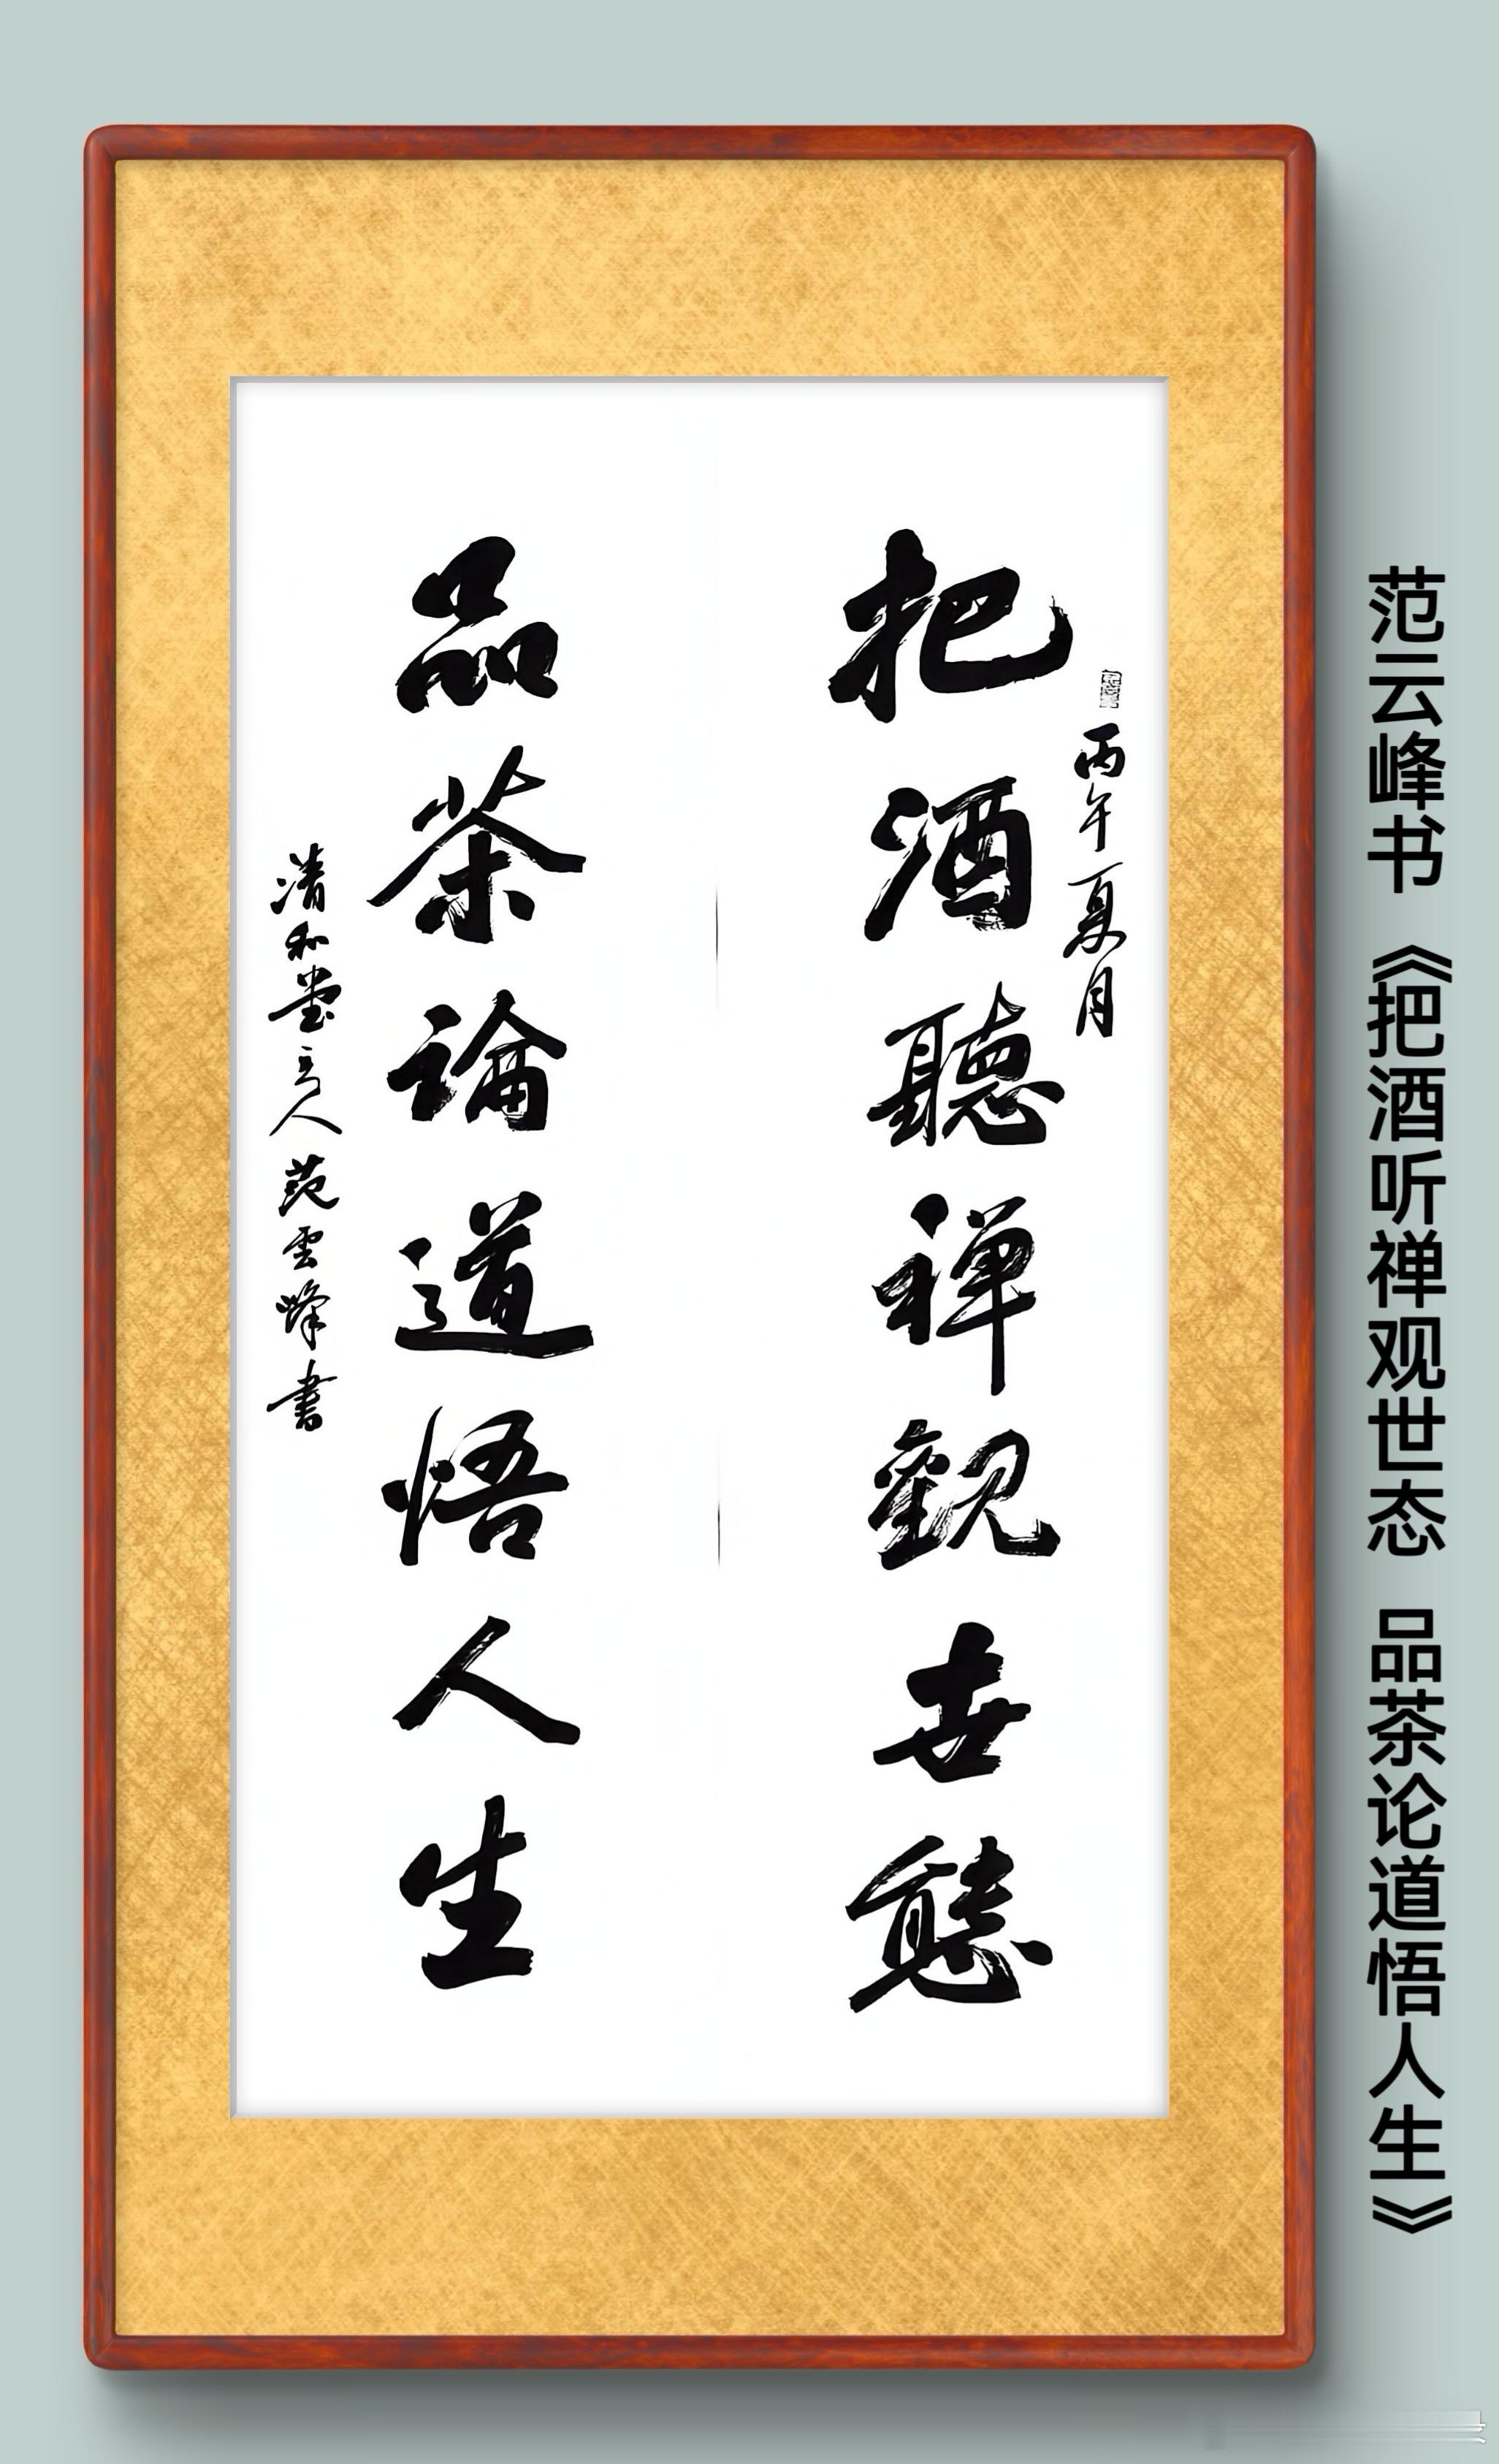 范云峰书 《把酒听禅观世态 品茶论道悟人生》
丙午夏月
把酒聽禅觀世態
品茶論道悟人生
清和堂主人范雲峰書